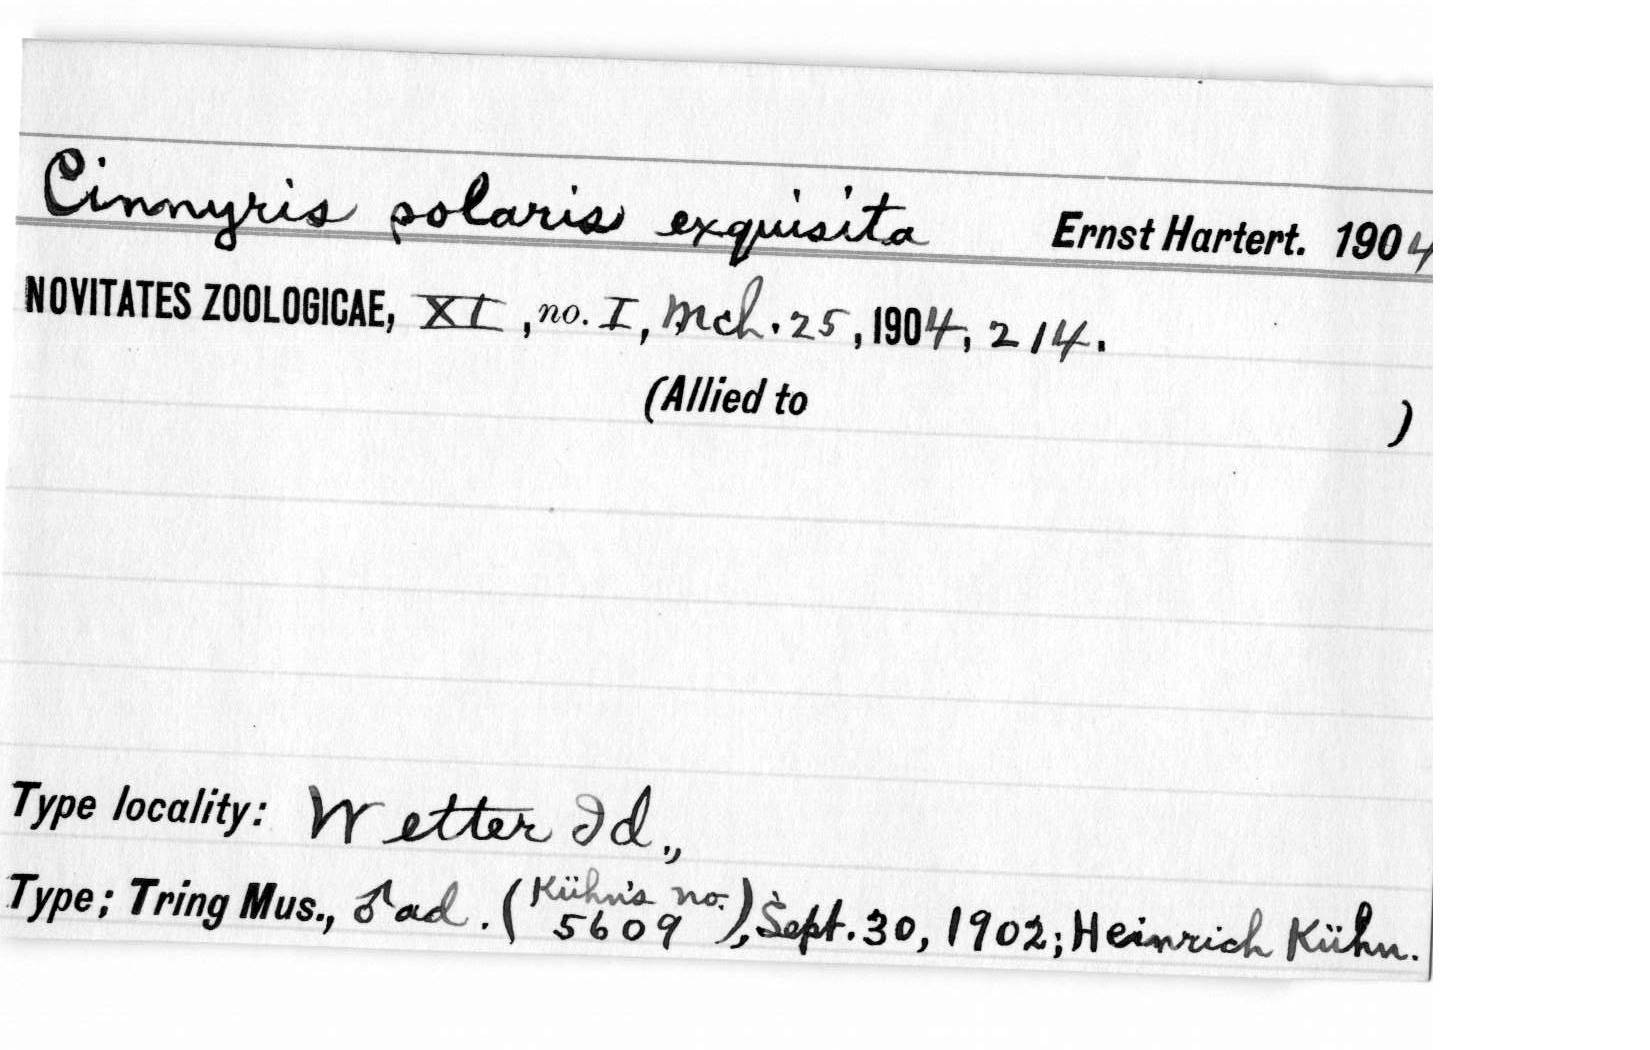 Cinnyris polaris exquisita Ernst Hartert. 1904
NOVITATES ZOOLOGICAE, XI, no. I, Mch. 25, 1904, 214.
(Allied to )
Type locality: Wetter Id.,
Type; Tring Mus., ♂ ad. (Kühn's no. 5609), Sept. 30, 1902; Heinrich Kühn.